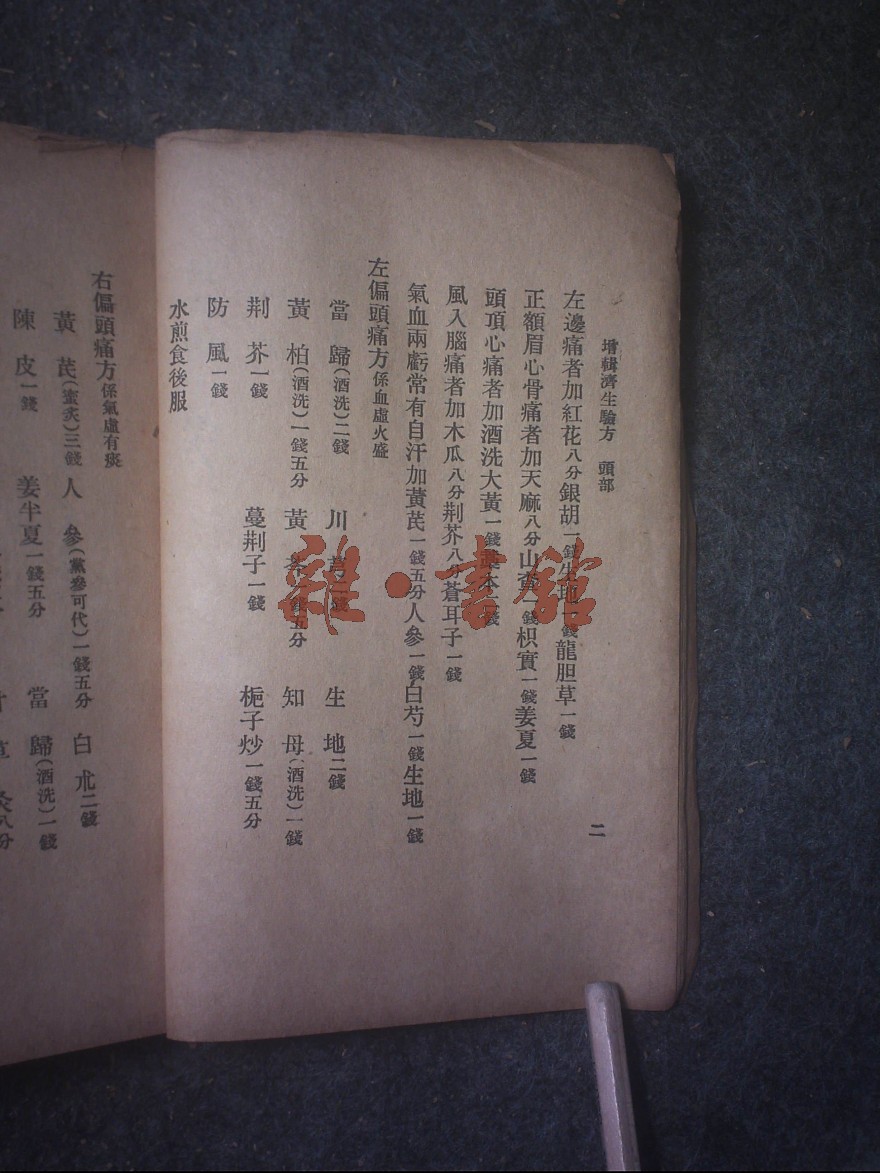 增輯濟生驗方 頭部 二
左邊痛者加紅花八分銀胡一錢生地一錢龍胆草一錢
正額眉心骨痛者加天麻八分山查一錢枳實一錢姜夏一錢
頭頂心痛者加酒洗大黃一錢藁本一錢
風入腦痛者加木瓜八分荆芥八分蒼耳子一錢
氣血兩虧常有自汗加黃芪一錢五分人參一錢白芍一錢生地一錢
左偏頭痛方係血虛火盛
當歸(酒洗)二錢 川芎二錢 生地二錢
黃柏(酒洗)一錢五分 黃芩一錢五分 知母(酒洗)一錢
荆芥一錢 蔓荆子一錢 梔子炒一錢五分
防風一錢
水煎食後服
右偏頭痛方係氣虛有痰
黃芪(蜜炙)三錢 人參(黨參可代)一錢五分 白朮二錢
陳皮一錢 姜半夏一錢五分 當歸(酒洗)一錢
雜·書館